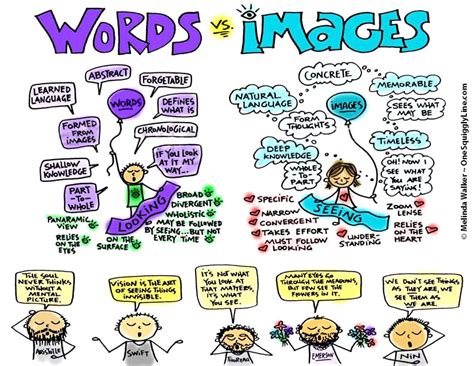 WORDS vs. iMAGES
ABSTRACT
FORGETABLE
LEARNED
LANGUAGE
WORDS
DEFINES
WHAT IS
FORMED
FROM
IMAGES
CHRONOLOGICAL
SHALLOW
KNOWLEDGE
IF YOU LOOK
AT IT MY
WAY...
PART-
TO-
WHOLE
LOOKING
PANARAMIC
VIEW
RELIES
ON THE
EYES
ON THE
SURFACE
BROAD
DIVERGENT
WHOLISTIC
MAY BE FOLLOWED
BY SEEING...BUT NOT
EVERY TIME
CONCRETE
MEMORABLE
NATURAL
LANGUAGE
IMAGES
SEES WHAT
MAY BE
FORM
THOUGHTS
TIMELESS
DEEP
KNOWLEDGE
OH! NOW I
SEE WHAT
YOU ARE
SAYING!
WHOLE-
TO-
PART
SEEING
SPECIFIC
NARROW
CONVERGENT
TAKES EFFORT
MUST FOLLOW
LOOKING
UNDER-
STANDING
ZOOM
LENSE
RELIES
ON THE
HEART
© Melinda Walker ~ OneSquigglyLine.com
THE SOUL
NEVER THINKS
WITHOUT A
MENTAL
PICTURE.
ARISTOTLE
VISION IS THE ART
OF SEEING THINGS
INVISIBLE.
SWIFT
IT'S NOT
WHAT YOU
LOOK AT
THAT MATTERS,
IT'S WHAT
YOU SEE.
THOREAU
MANY EYES GO
THROUGH THE MEADOWS,
BUT FEW SEE THE
FLOWERS IN IT.
EMERSON
WE DON'T SEE THINGS
AS THEY ARE, WE
SEE THEM AS
WE ARE.
NIN